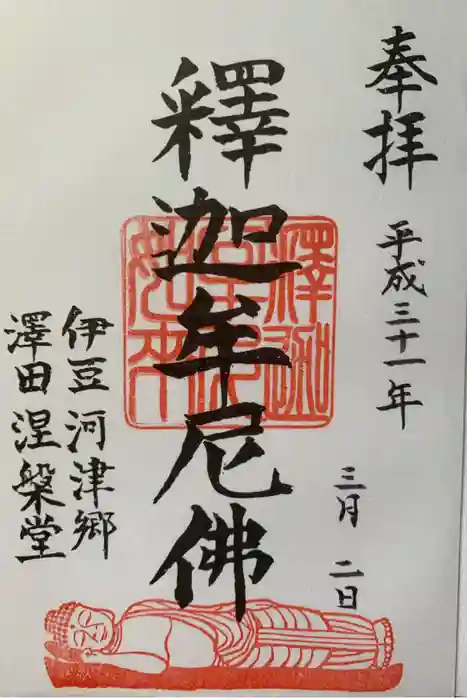 奉拝
平成三十一年
三月二日
釋迦牟尼佛
伊豆河津郷
澤田涅槃堂